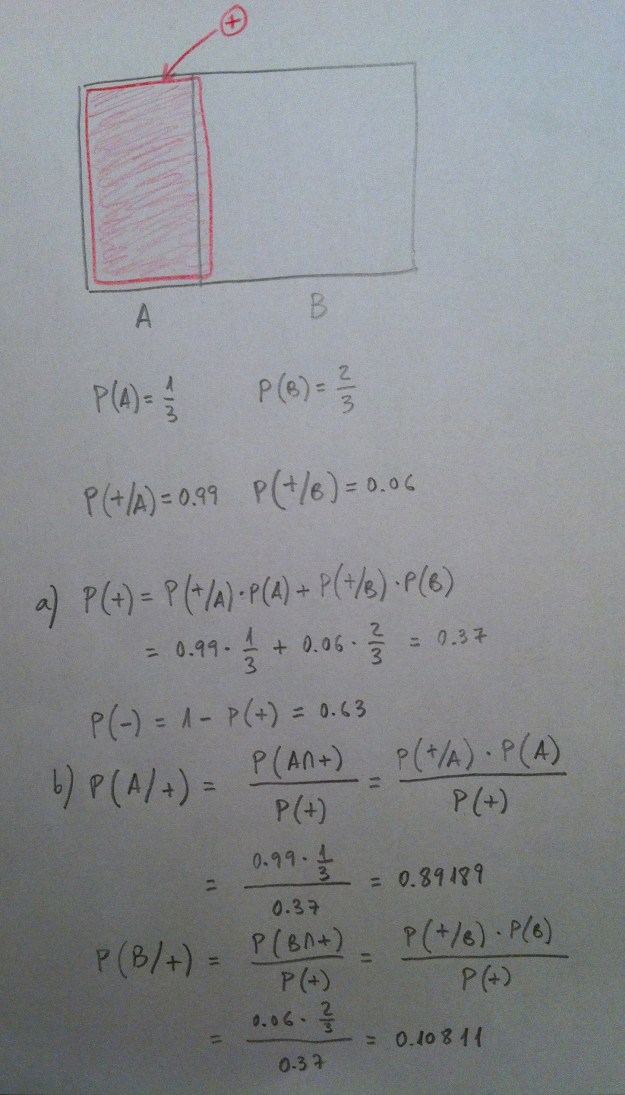 +
A B
P(A) = 1/3 P(B) = 2/3
P(+/A) = 0.99 P(+/B) = 0.06
a) P(+) = P(+/A) · P(A) + P(+/B) · P(B)
= 0.99 · 1/3 + 0.06 · 2/3 = 0.37
P(-) = 1 - P(+) = 0.63
b) P(A/+) = P(A∩+)/P(+) = P(+/A) · P(A)/P(+)
= 0.99 · 1/3/0.37 = 0.89189
P(B/+) = P(B∩+)/P(+) = P(+/B) · P(B)/P(+)
= 0.06 · 2/3/0.37 = 0.10811